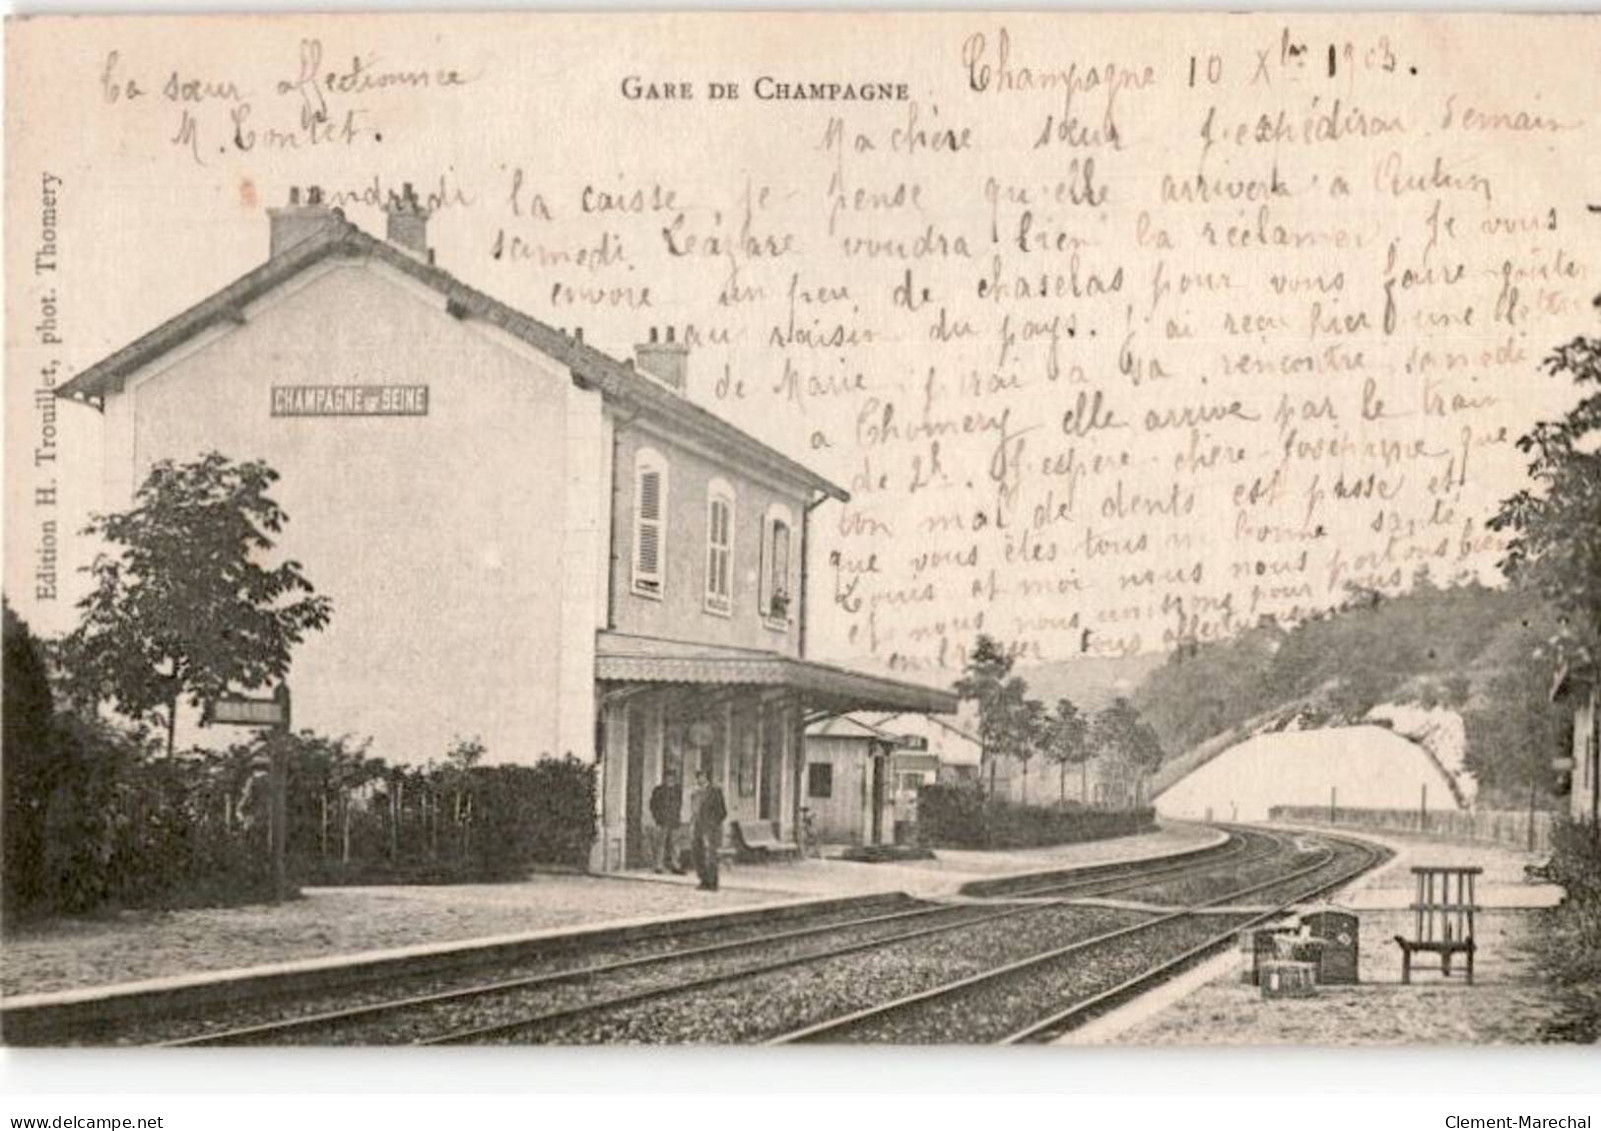 GARE DE CHAMPAGNE
Champagne 10 Xbre 1903.
Ma chère sœur j'expédirai demain
vendredi la caisse je pense qu'elle arrivera a Autun
samedi. Leázare voudra bien la réclamer. Je vous
envoie un peu de chaselas pour vous faire goûter
au raisin du pays. J'ai reçu hier une lettre
de Marie j'irai a sa rencontre samedi
a Thomery elle arrive par le train
de 2h. J'espère chère Joséphine que
ton mal de dents est passé et
que vous êtes tous en bonne santé
Louis et moi nous nous portons bien
et nous nous unissons pour vous
embrasser tous affectueusement
Ta sœur affectionnée
M. Tontet.
CHAMPAGNE SUR SEINE
Edition H. Trouillet, phot. Thomery
delcampe.net
Clement-Marechal